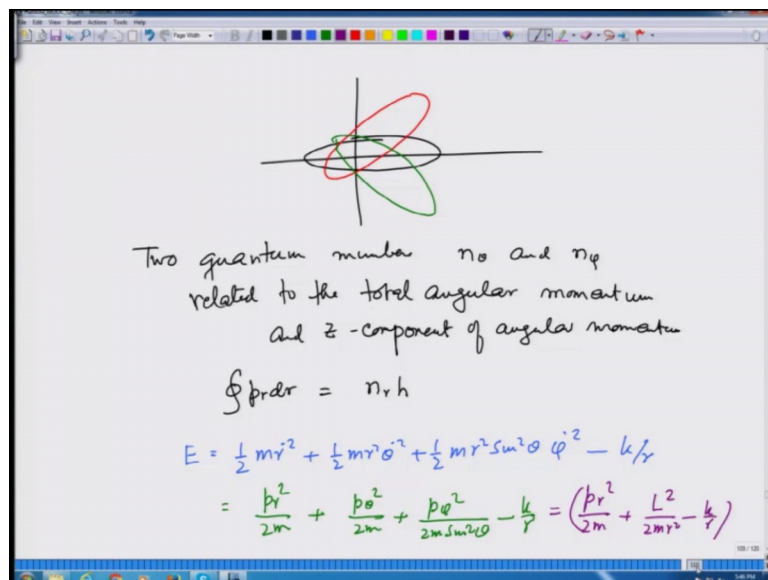 File Edit View Insert Actions Tools Help
Page Width
Two quantum number nθ and nφ
related to the total angular momentum
and z-component of angular momentum
∮ prdr = nrh
E = 1/2 mṙ² + 1/2 mr²θ̇² + 1/2 mr² Sin²θ φ̇² − k/r
= pr²/2m + pθ²/2m + pφ²/2m Sin²θ − k/r = (pr²/2m + L²/2mr² − k/r)
109 / 120
5:46 PM